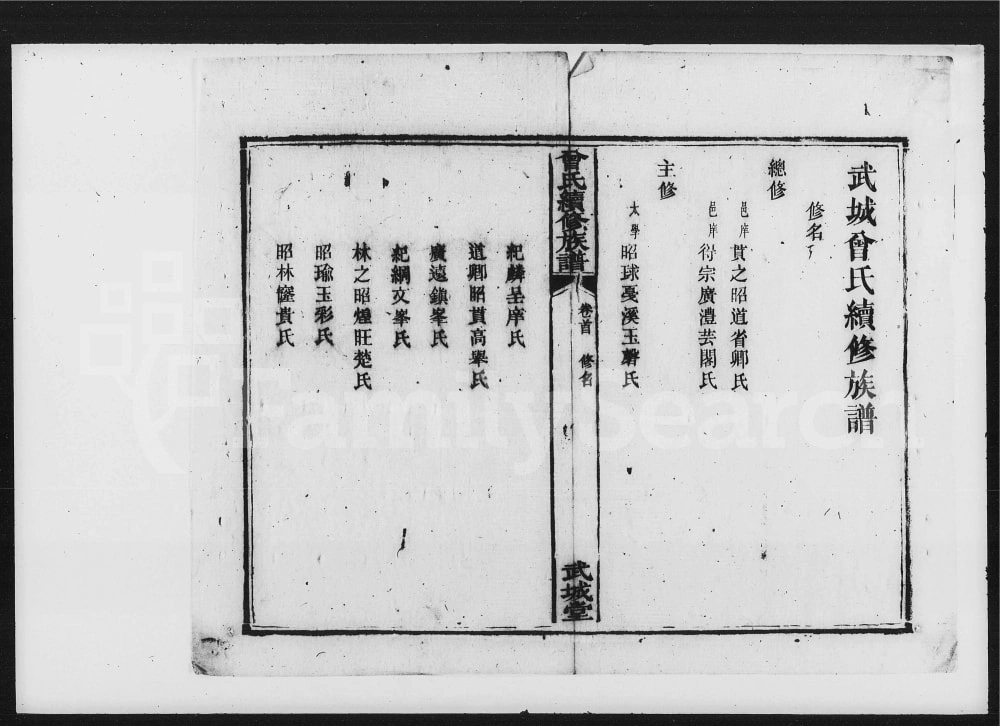 武城曾氏續修族譜
修名
總修
邑庠貫之昭道省卿氏
邑庠得宗廣澧芸閣氏
主修
太學昭球戞溪玉磬氏
曾氏續修族譜
卷首
修名
武城堂
紀麟呈庠氏
道卿昭貫高舉氏
廣遠鎮峯氏
紀綱文峯氏
林之昭煌旺楚氏
昭瑜玉彩氏
昭林貴氏
FamilySearch